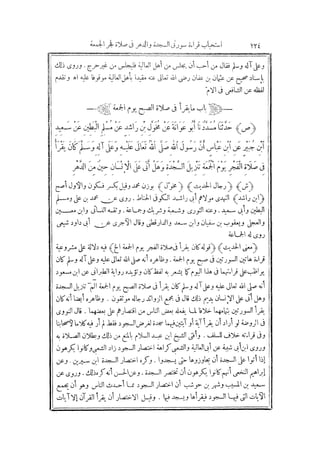 ٢٢٤ استحباب قراءة سورتى السجدة والدهر فى صلاة فجر الجمعة
وعلى آله وسلم فقال من أحب أن يجلس من أهل العالية فليجلس من غير حرج. وروى ذلك
بإسناد صحيح عن عثمان بن عفان رضى الله تعالى عنه مقيدا بأهل العالية موقوفا عليه اهـ وتقدم
لفظه عن الشافعى فى الام
باب ما يقرأ فى صلاة الصبح يوم الجمعة
(ص) حَدَّثَنَا مُسَدَّدٌ نَا أَبُو عَوَانَةَ عَنْ مُخَوَّلِ بْنِ رَاشِدٍ عَنْ مُسْلِمٍ الْبَطِينِ عَنْ سَعِيدِ
ابْنِ جُبَيْرٍ عَنِ ابْنِ عَبَّاسٍ أَنَّ رَسُولَ اللهِ صَلَّى اللهُ تَعَالَى عَلَيْهِ وَعَلَى آلِهِ وَسَلَّمَ كَانَ يَقْرَأُ
فِى صَلَاةِ الْفَجْرِ يَوْمَ الْجُمُعَةِ تَنْزِيلَ السَّجْدَةِ وَهَلْ أَتَى عَلَى الْإِنْسَانِ حِينٌ مِنَ الدَّهْرِ
(ش) (رجال الحديث) (مخول) بوزن محمد وقيل بكسر فسكون والأول أصح
(ابن راشد) النهدى مولاهم أبى راشد الكوفى الحناط. روى عن محمد بن على ومسلم
البطين وأبى سعيد. وعنه الثورى وشعبة وشريك وجماعة. وثقه النسائى وابن معين
والعجلى ويعقوب بن سفيان وابن سعد والدارقطنى وقال الآجرى عن أبى داود شيعى
روى له الجماعة
(معنى الحديث) (قوله كان يقرأ فى صلاة الفجر يوم الجمعة الخ) فيه دلالة على مشروعية
قراءة هاتين السورتين فى صبح يوم الجمعة. وظاهره أنه صلى الله تعالى عليه وعلى آله وسلم كان
يواظب على قراءتهما فى هذا اليوم كما يشعر به لفظ كان وتؤيده رواية الطبرانى عن ابن مسعود
أنه صلى الله تعالى عليه وعلى آله وسلم كان يقرأ فى صلاة الصبح يوم الجمعة الم تنزيل السجدة
وهل أتى على الإنسان يديم ذلك قال فى مجمع الزوائد رجاله موثقون. وظاهره أيضا أنه كان
يقرأ السورتين بتمامهما خلافا لما يفعله بعض الناس من اقتصارهم على بعضهما. قال النووى
فى الروضة لو أراد أن يقرأ آية أو آيتين فيهما سجدة لغرض السجود فقط لم أر فيه كلاما لأصحابنا
وفى قراءته خلاف للسلف. وأفتى الشيخ ابن عبد السلام بالمنع من ذلك وبطلان الصلاة به
وروى ابن أبى شيبة عن أبى العالية والشعبى كراهة اختصار السجود زاد الشعبى وكانوا يكرهون
إذا أتوا على السجدة أن يجاوزوها حتى يسجدوا. وكره اختصار السجدة ابن سيرين. وعن
إبراهيم النخعى أنهم كانوا يكرهون أن تختصر السجدة. وعن الحسن أنه كره ذلك. وروى عن
سعيد بن المسيب وشهر بن حوشب أن اختصار السجود مما أحدث الناس وهو أن يجمع
الآيات التى فيها السجود فيقرأها ويسجد فيها. وقيل الاختصار أن يقرأ القرآن إلا آيات